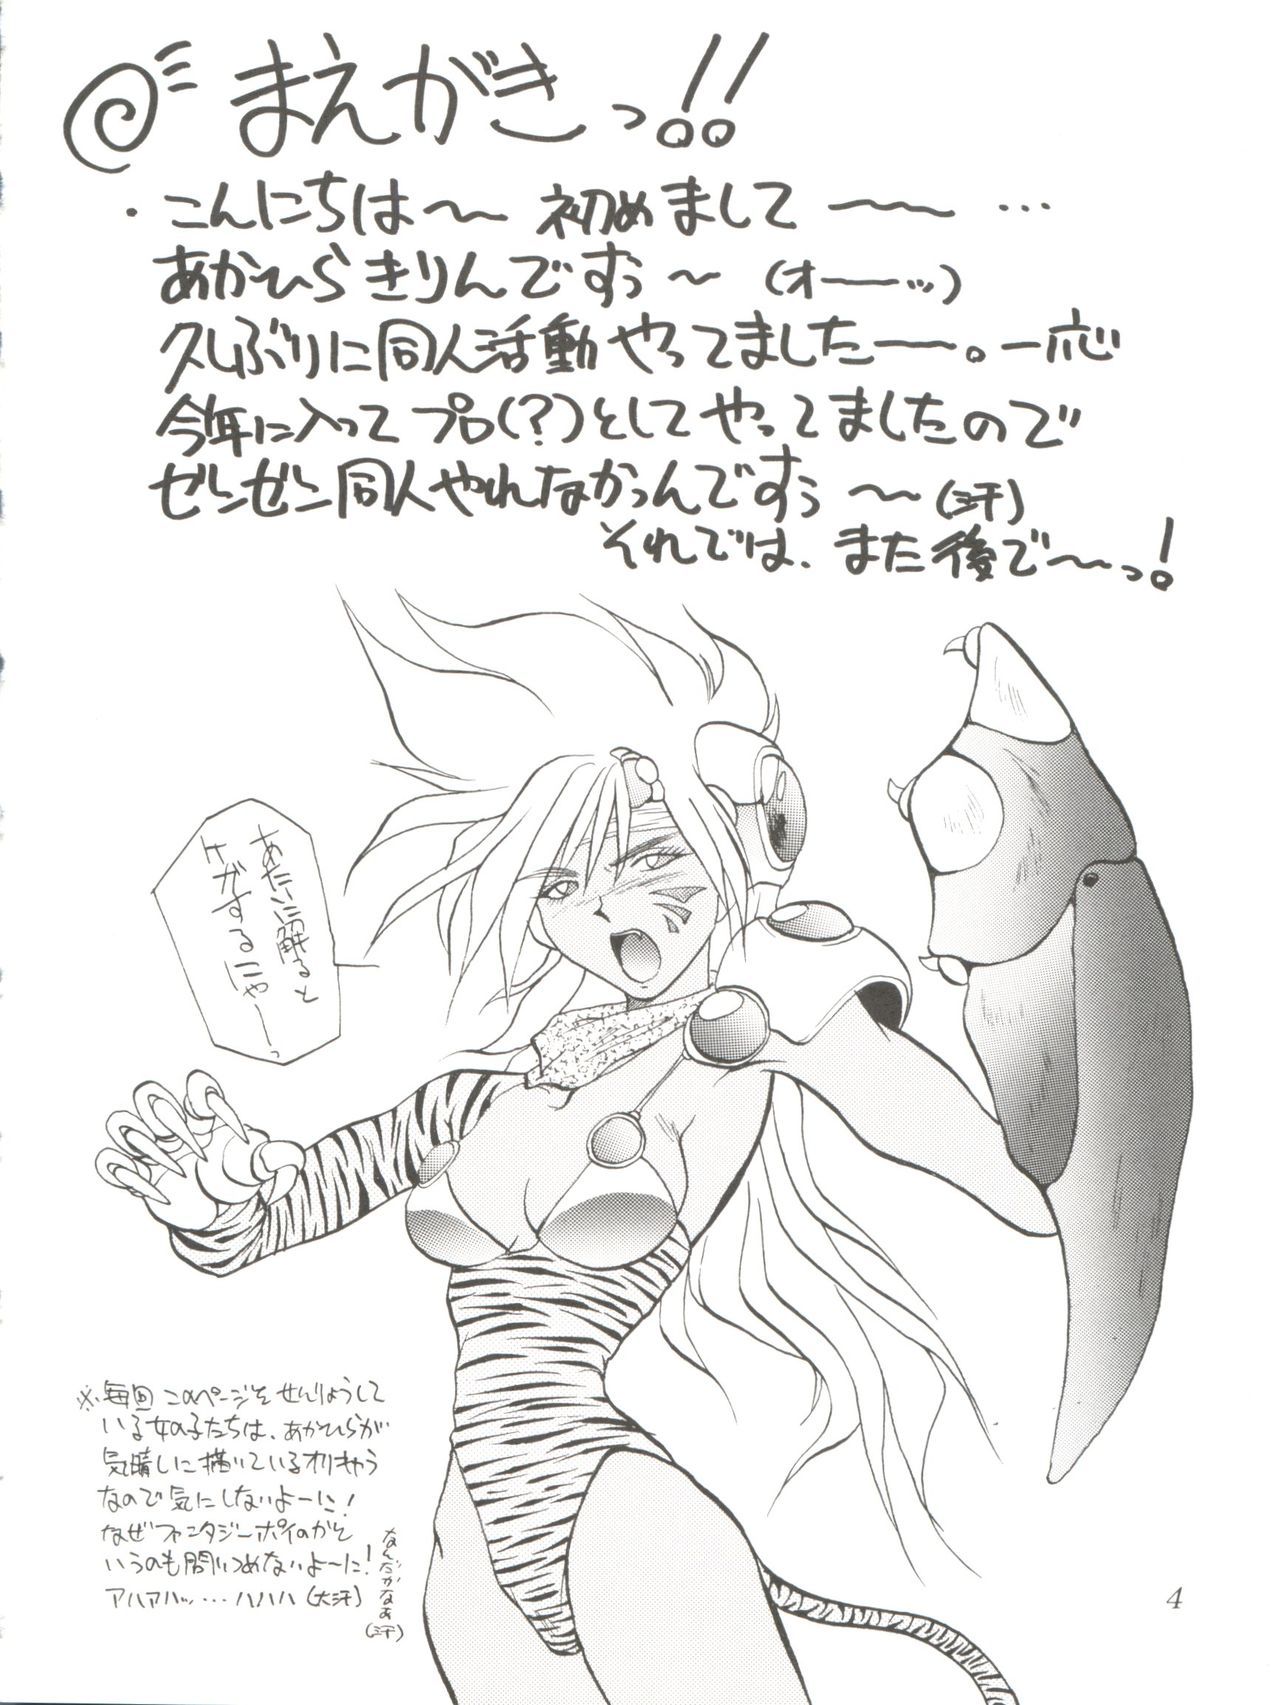 まえがきっ!!
・こんにちは〜〜 初めまして 〜〜 …
あかひらきりんですぅ〜 (オーーッ)
久しぶりに同人活動やってましたーー。一応
今年に入ってプロ(?)としてやってましたので
ゼンゼン同人やれなかったんですぅ 〜〜(汗)
それでは、また後で〜〜っ!
あたいに触ると
ケガするにゃーーっ
※毎回このページをせんりょうして
いる女の子たちは、あかひらが
気晴しに描いているオリキャラ
なので気にしないよーに!
なぜファンタジーポイのかと
いうのも問いつめないよ〜に!
アハアハッ…ハハハ(大汗)
なんだかなぁ(汗)
4